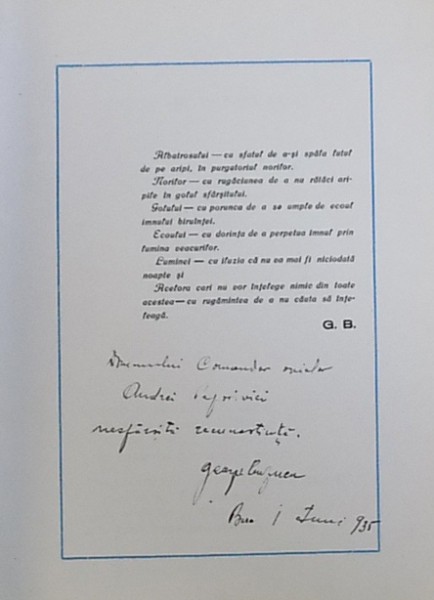 Albatrosului — cu sfatul de a-și spăla lutul
de pe aripi, în purgatoriul norilor.
Norilor — cu rugăciunea de a nu rătăci ari-
pile în golul sfârșitului.
Golului — cu porunca de a se umple de ecoul
imnului biruinței.
Ecoului — cu dorința de a perpetua imnul prin
lumina veacurilor.
Luminei — cu iluzia că nu va mai fi niciodată
noapte și
Acelora cari nu vor înțelege nimic din toate
acestea — cu rugămintea de a nu căuta să înțe-
leagă.
G. B.
Domnului Comandor aviator
Andrei
nesfârșită recunoștință.
George
Buc 1 Iuni 935